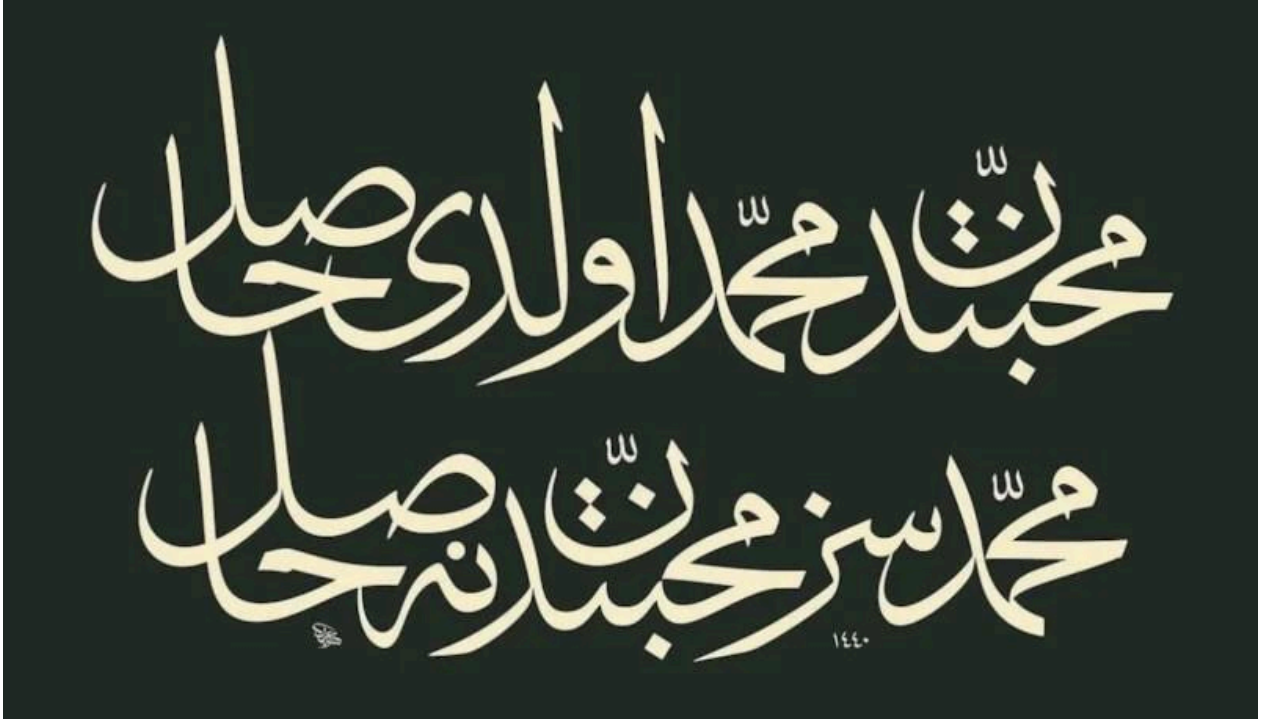 محبتدن محمد اولدی حاصل
محمدسز محبتدن نه حاصل
١٤٤٠